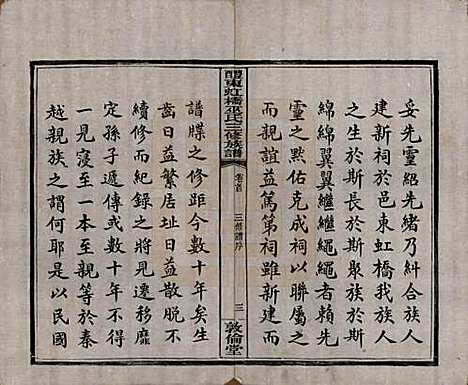 妥先靈紹先緒乃糾合族人
建新祠於邑東虹橋我族人
之生於斯長於斯聚族於斯
綿綿翼翼繼繼繩繩者賴先
靈之默佑克成祠以聯屬之
而親誼益篤第祠雖新建而
醴東虹橋巫氏三修族譜
卷首
三修譜序
三
敦倫堂
譜牒之修距今數十年矣生
齒日益繁居址日益散脫不
續修而紀錄之將見遷移靡
定孫子遞傳或數十年不得
一見寖至一本至親等於秦
越親族之謂何耶是以民國